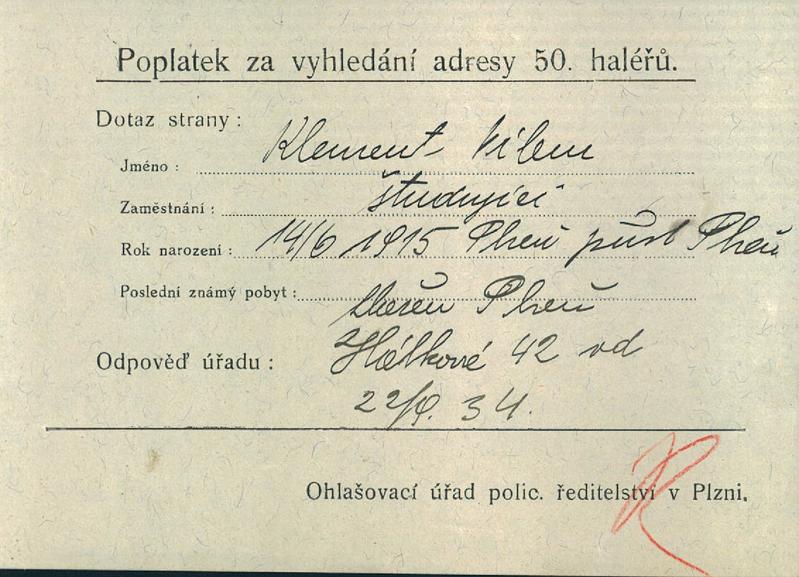 Poplatek za vyhledání adresy 50. haléřů.
Dotaz strany:
Jméno: Klement Vilem
Zaměstnání: študující
Rok narození: 14/6 1915 Plzeň přísl Plzeň
Poslední známý pobyt: Plzeň
Odpověď úřadu: Hálkově 42 od
22/9. 34.
Ohlašovací úřad polic. ředitelství v Plzni.